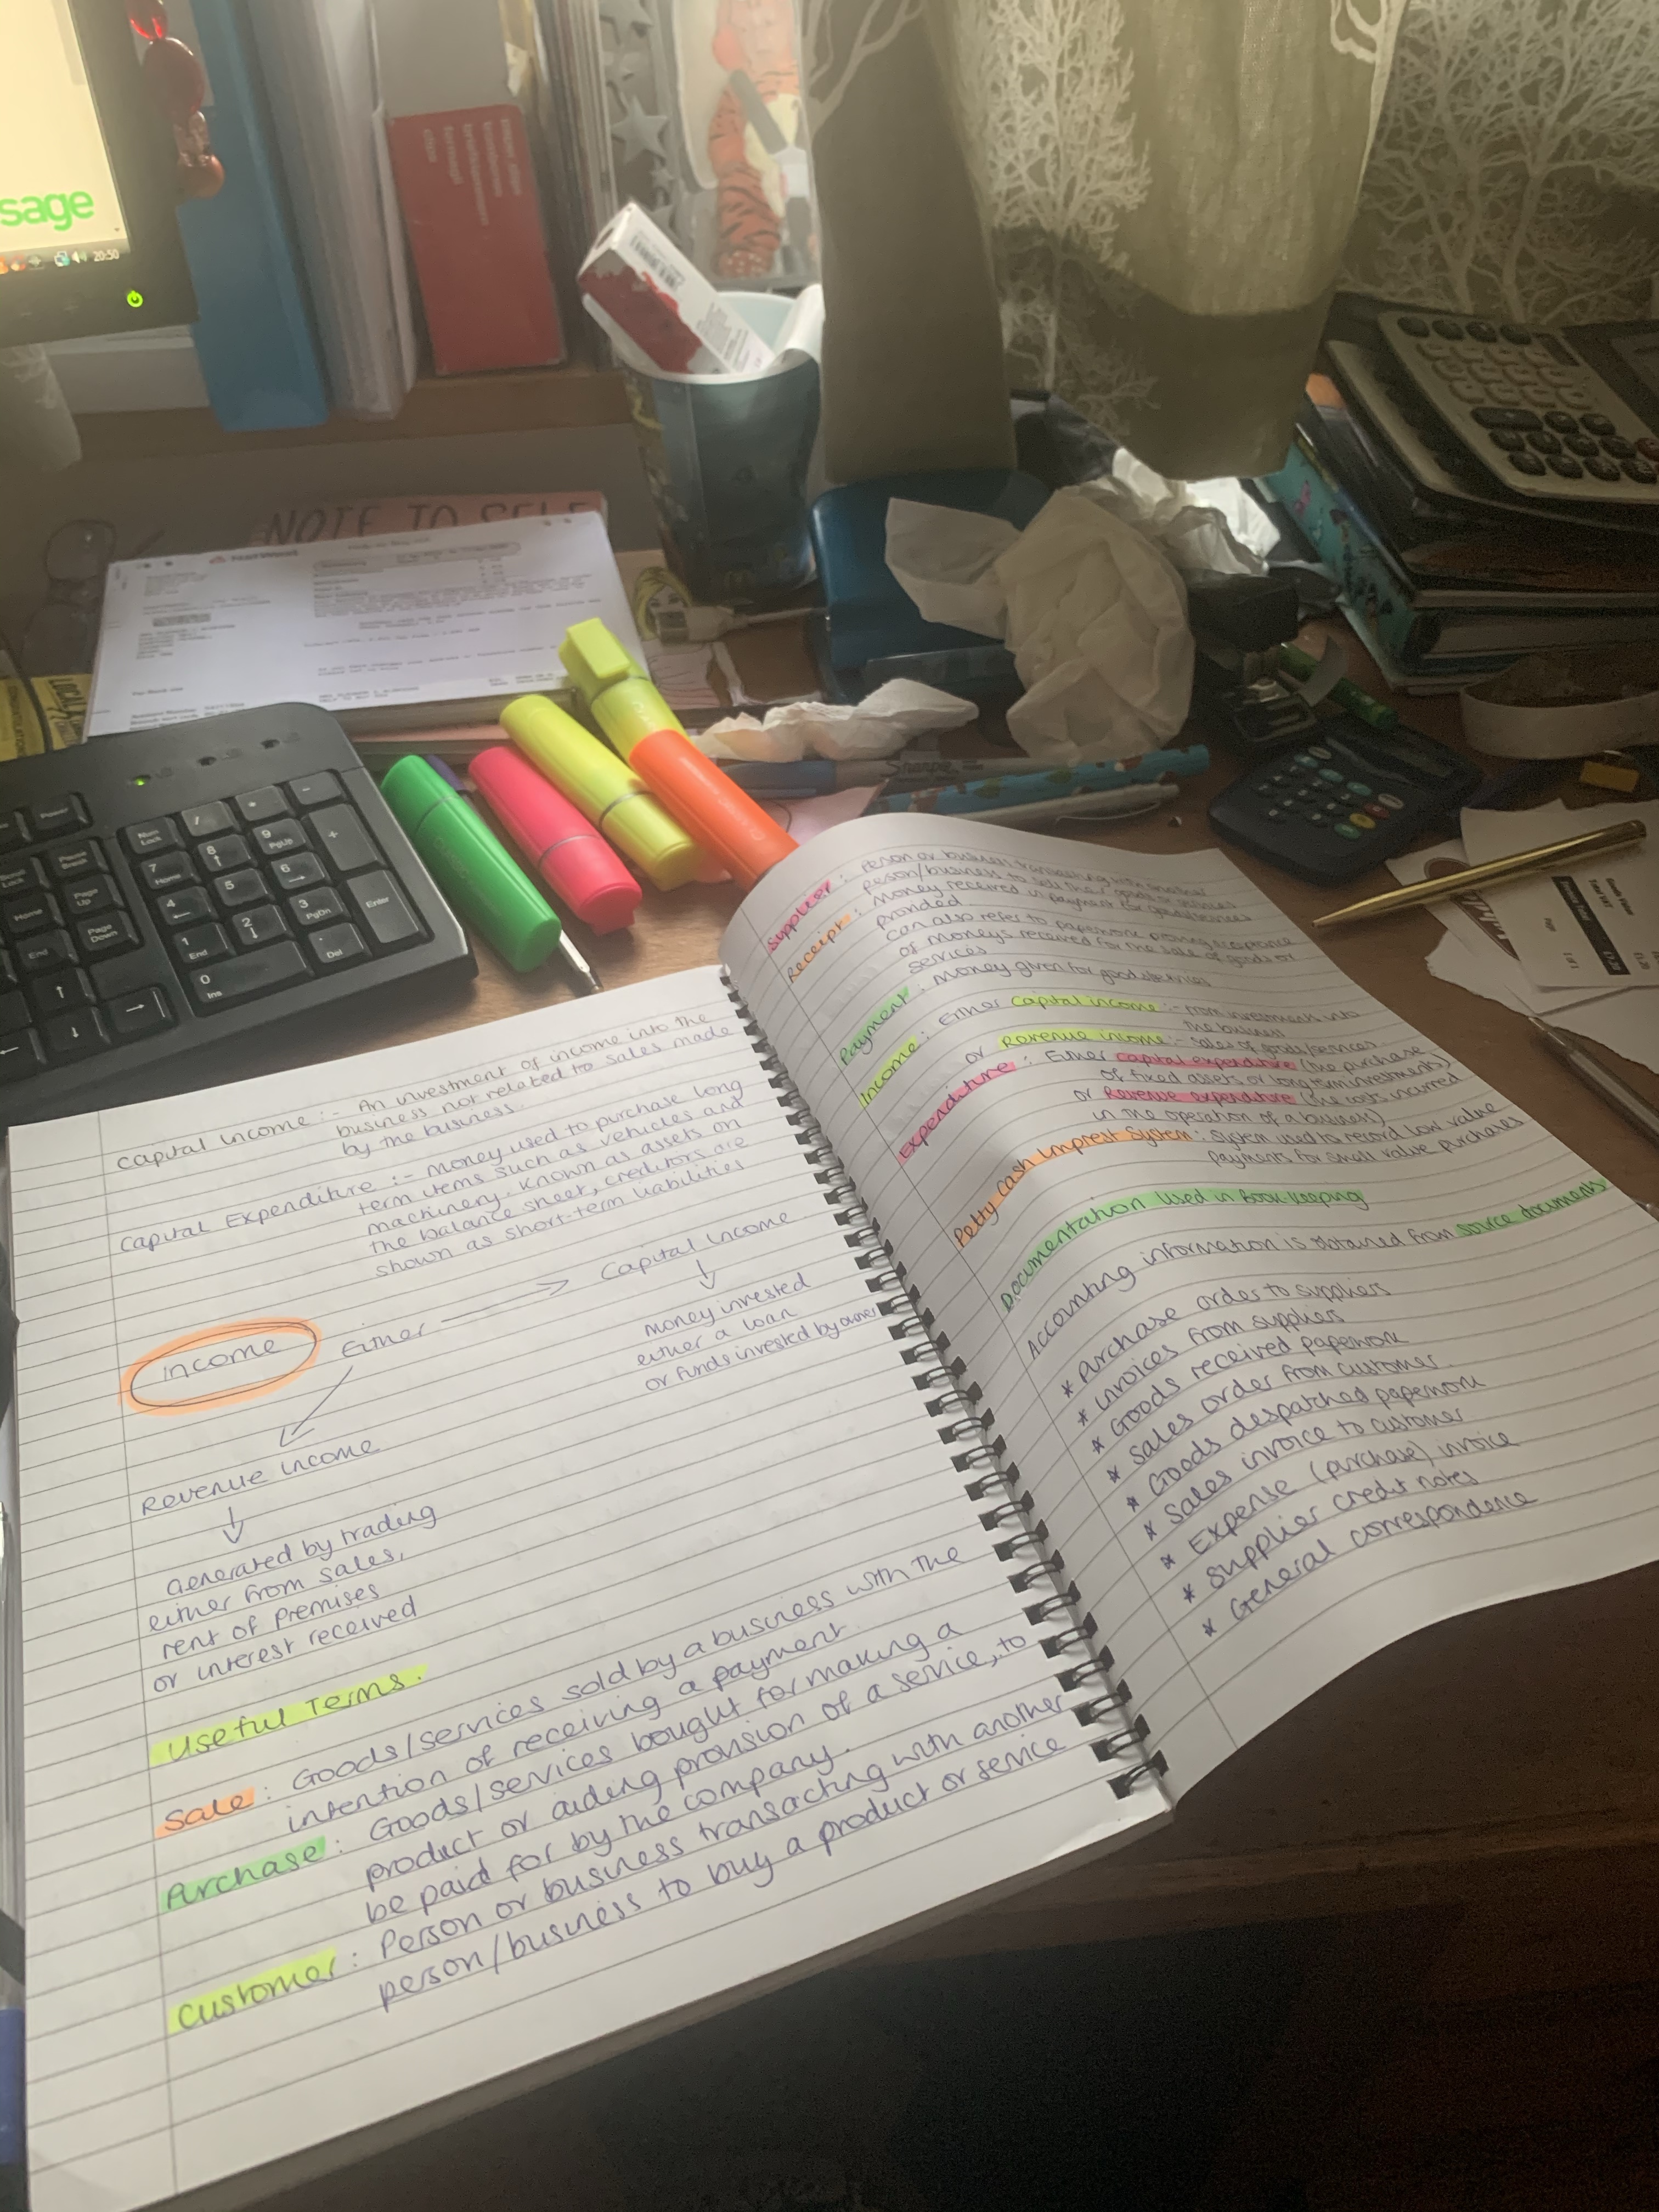 sage
20:50
NOTE TO SELF
NatWest
Sharpie
Num Lock
/
*
-
7 Home
8
9 PgUp
+
4
5
6
1 End
2
3 PgDn
Enter
0 Ins
. Del
Page Up
Page Down
Home
End
Capital income :- An investment of income into the
business not related to sales made
by the business.
Capital Expenditure :- Money used to purchase long
term items such as vehicles and
machinery. Known as assets on
the balance sheet, creditors are
shown as short-term liabilities
income
Either
Capital Income
money invested
either a loan
or funds invested by owner
Revenue income
Generated by trading
either from sales,
rent of premises
or interest received
Useful Terms.
Sale : Goods/services sold by a business with the
intention of receiving a payment.
Purchase : Goods/services bought for making a
product or aiding provision of a service, to
be paid for by the company.
Customer : Person or business transacting with another
person/business to buy a product or service
Supplier : Person or business transacting with another
person/business to sell their goods or services
Receipt : Money received in payment for goods/services
provided
can also refer to paperwork proving acceptance
of moneys received for the sale of goods or
services
Payment : Money given for goods/services
Income : Either capital income :- from investments into
the business
or Revenue income :- sales of goods/services
Expenditure : Either capital expenditure (the purchase
of fixed assets or long term investments)
or Revenue expenditure (the costs incurred
in the operation of a business)
Petty Cash Imprest System : System used to record low value
payments for small value purchases
Documentation Used in Book-keeping
Accounting information is obtained from source documents
* Purchase order to suppliers
* invoices from suppliers
* Goods received paperwork
* Sales order from customer
* Goods despatched paperwork
* Sales invoice to customer
* Expense (purchase) invoice
* Supplier credit notes
* General correspondence